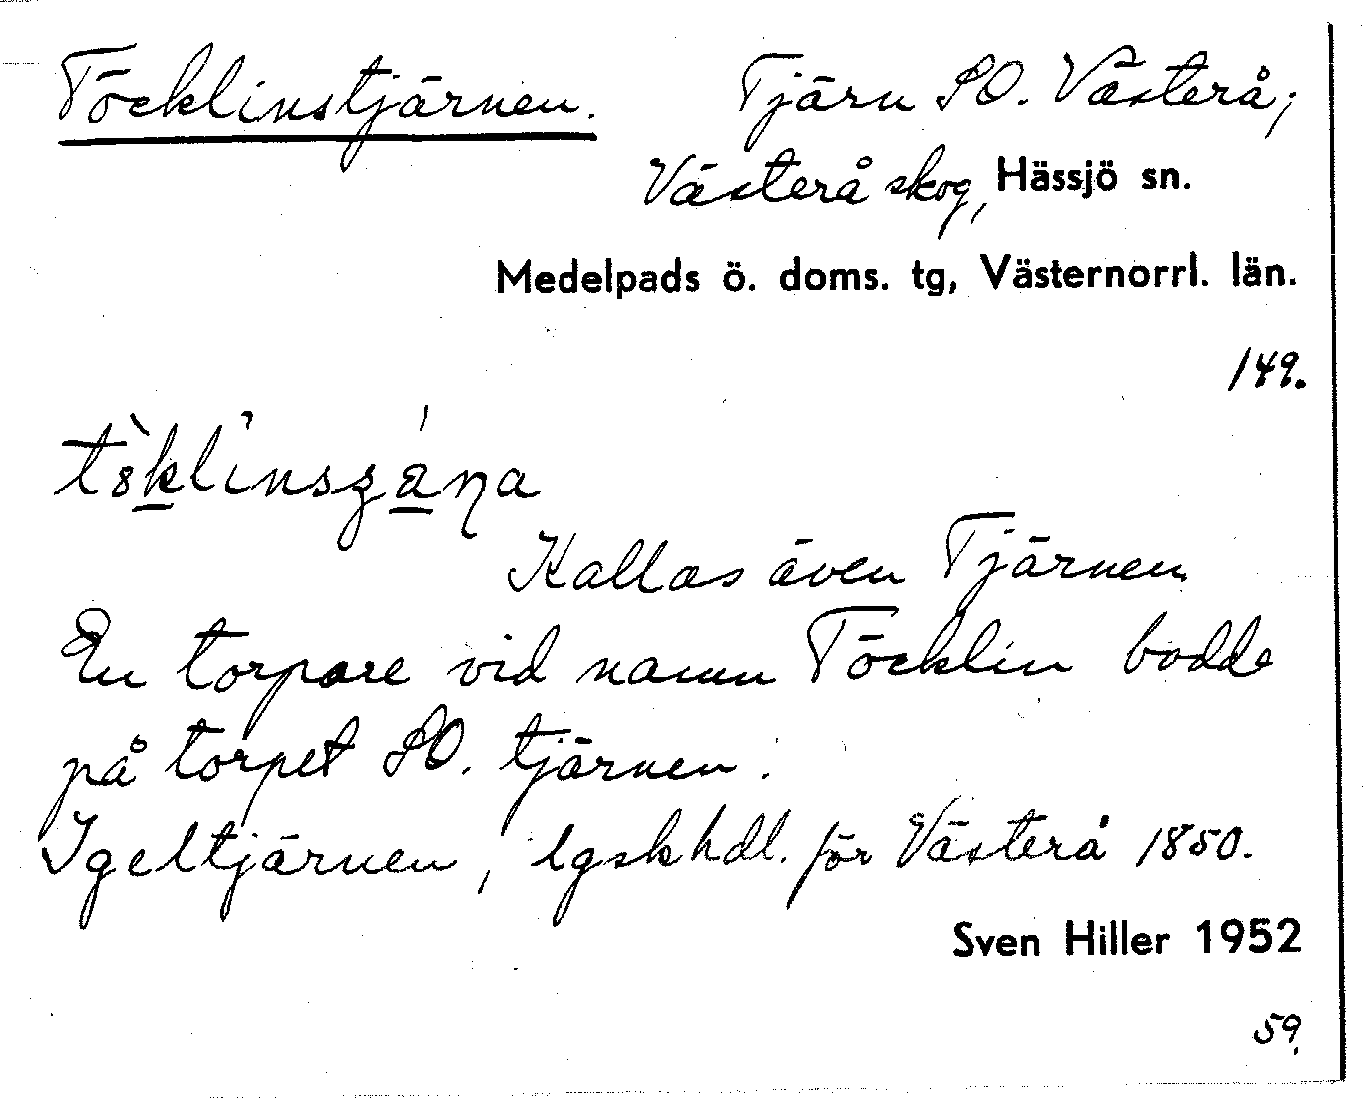 Töcklinstjärnen. Tjärn SO. Västerå;
Västerå skog, Hässjö sn.
Medelpads ö. doms. tg, Västernorrl. län.
149.
Kallas även Tjärnen.
En torpare vid namn Töcklin bodde
på torpet SO. tjärnen.
Igeltjärnen, lgskhdl. för Västerå 1850.
Sven Hiller 1952
59.